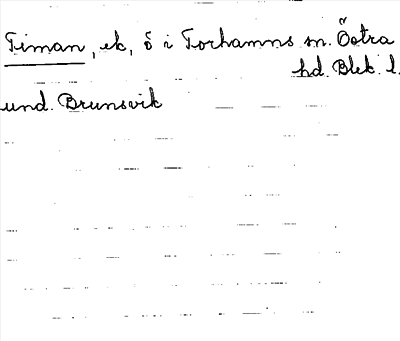 Timan, ek, ö i Torhamns sn. Östra
hd. Blek. l.
und. Brunsvik